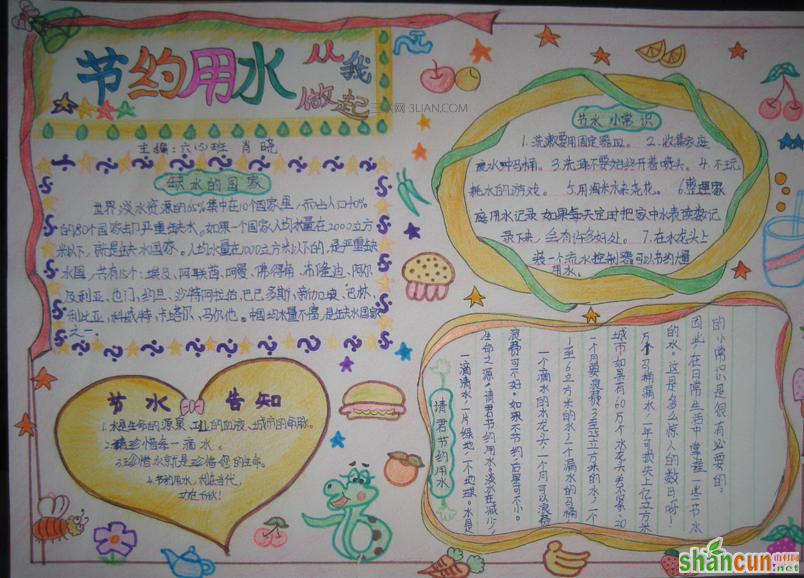 节约用水 从我做起
三联网 3LIAN.COM
主编：六(4)班 肖晓
缺水的国家
世界淡水资源的65%集中在10个国家里，而占人口40%
的80个国家却严重缺水，如果一个国家人均水量在2000立方
米以下，就是缺水国家。人均水量在1000立方米以下的，是严重缺
水国，共有15个：埃及、阿联酋、阿曼、佛得角、布隆迪、阿尔
及利亚、也门、约旦、沙特阿拉伯、巴巴多斯、新加坡、巴林、
利比亚、科威特、卡塔尔、马尔他。中国均水量不富，是缺水国家
之一。
节水小常识
1.洗漱要用固定器皿。 2.收集家庭
废水冲马桶。3.洗澡不要始终开着喷头。4.不玩
耗水的游戏。 5.用淘米水来浇花。 6.整理家
庭用水记录，如果每天定时把家中水表读数记
录下来，会有许多好处。7.在水龙头上
装一个流水控制器可以节约量
用水。
节水 告知
1.水是生命的源泉、工业的血液、城市的命脉。
2.请珍惜每一滴水。
3.珍惜水就是珍惜您的生命。
4.节约用水，利在当代，
功在千秋！
请君节约用水
一滴清水，一片绿地，一个地球。水是
生命之源，请君节约用水。淡水在减少，
浪费可不好。如果不节约后果可不小。
一个滴水的水龙头一个月可以浪费
1至6立方米的水，一个漏水的马桶
一个月要浪费3至25立方米的水，一个
城市如果有60万个水龙头关不紧、20
万个马桶漏水，一年可损失上亿立方米
的水。这是多么惊人的数目呀！
因此，在日常生活中掌握一些节水
的小常识是很有必要的。
shancun
山村网
.net